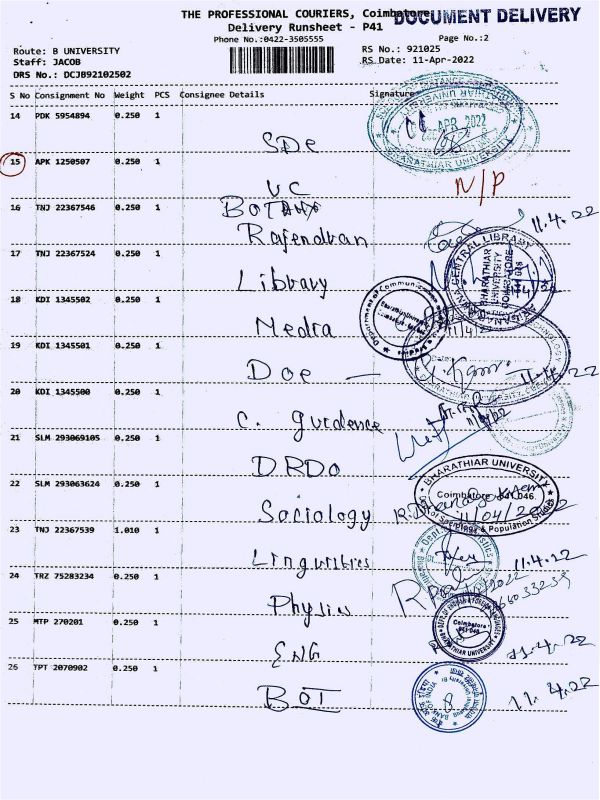 THE PROFESSIONAL COURIERS, Coimbatore
DOCUMENT DELIVERY
Delivery Runsheet - P41
Phone No.:0422-3505555 Page No.:2
Route: B UNIVERSITY RS No.: 921025
Staff: JACOB RS Date: 11-Apr-2022
DRS No.: DCJB92102502
S No Consignment No Weight PCS Consignee Details Signature
14 PDK 5954894 0.250 1
SDE
APR 2022
BHARATHIAR UNIVERSITY
15 APK 1250507 0.250 1
VC N/P
16 TNJ 22367546 0.250 1
BOTANY
Rajendran 11.4.22
17 TNJ 22367524 0.250 1
Library
CENTRAL LIBRARY
BHARATHIAR
UNIVERSITY
COIMBATORE
18 KDI 1345502 0.250 1
Media
Department of Communication
11/4/22
19 KDI 1345501 0.250 1
Doe 11.4.22
20 KDI 1345500 0.250 1
C. guidence
21 SLM 293069105 0.250 1
DRDO
22 SLM 293063624 0.250 1
Sociology
BHARATHIAR UNIVERSITY
Coimbatore 641 046
Dept. of Sociology & Population Studies
11/04/2022
23 TNJ 22367539 1.010 1
Linguistics 11.4.22
24 TRZ 75283234 0.250 1
Physics
25 MTP 270201 0.250 1
ENG 11.4.22
Coimbatore
641 046
BHARATHIAR UNIVERSITY
26 TPT 2070902 0.250 1
BOI 11.4.22